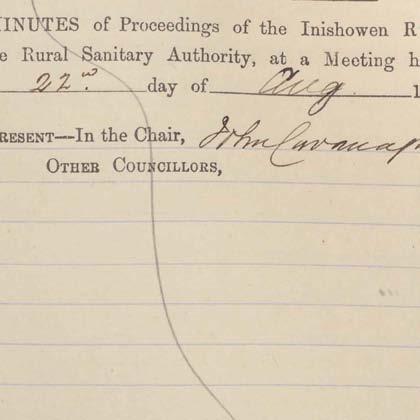 MINUTES of Proceedings of the Inishowen R
e Rural Sanitary Authority, at a Meeting h
22nd. day of Aug. 1
RESENT—In the Chair, John Cavanagh
OTHER COUNCILLORS,